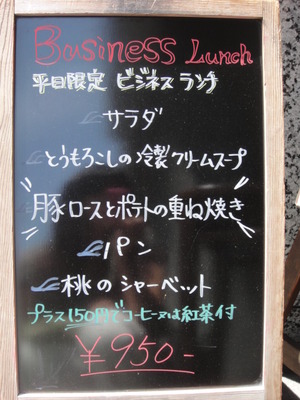 Business Lunch
平日限定 ビジネスランチ
サラダ
とうもろこしの冷製クリームスープ
豚ロースとポテトの重ね焼き
パン
桃のシャーベット
プラス150円でコーヒー又は紅茶付
¥950-